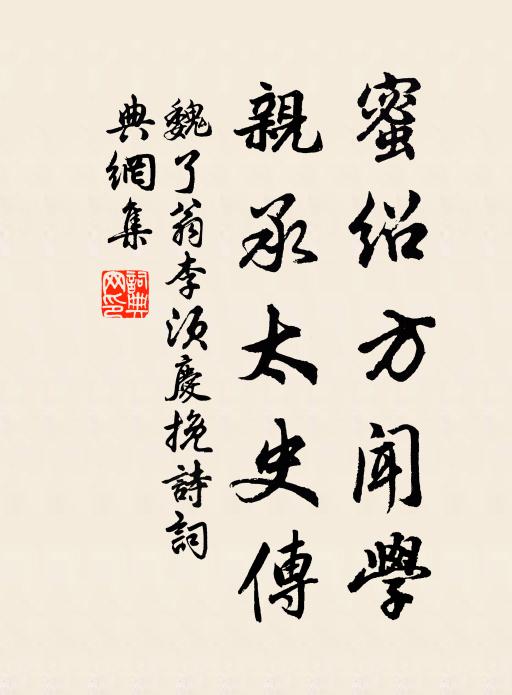 蜜紹方聞學
親承太史傳
魏了翁李須慶挽詩詞
典網集
詞典網印